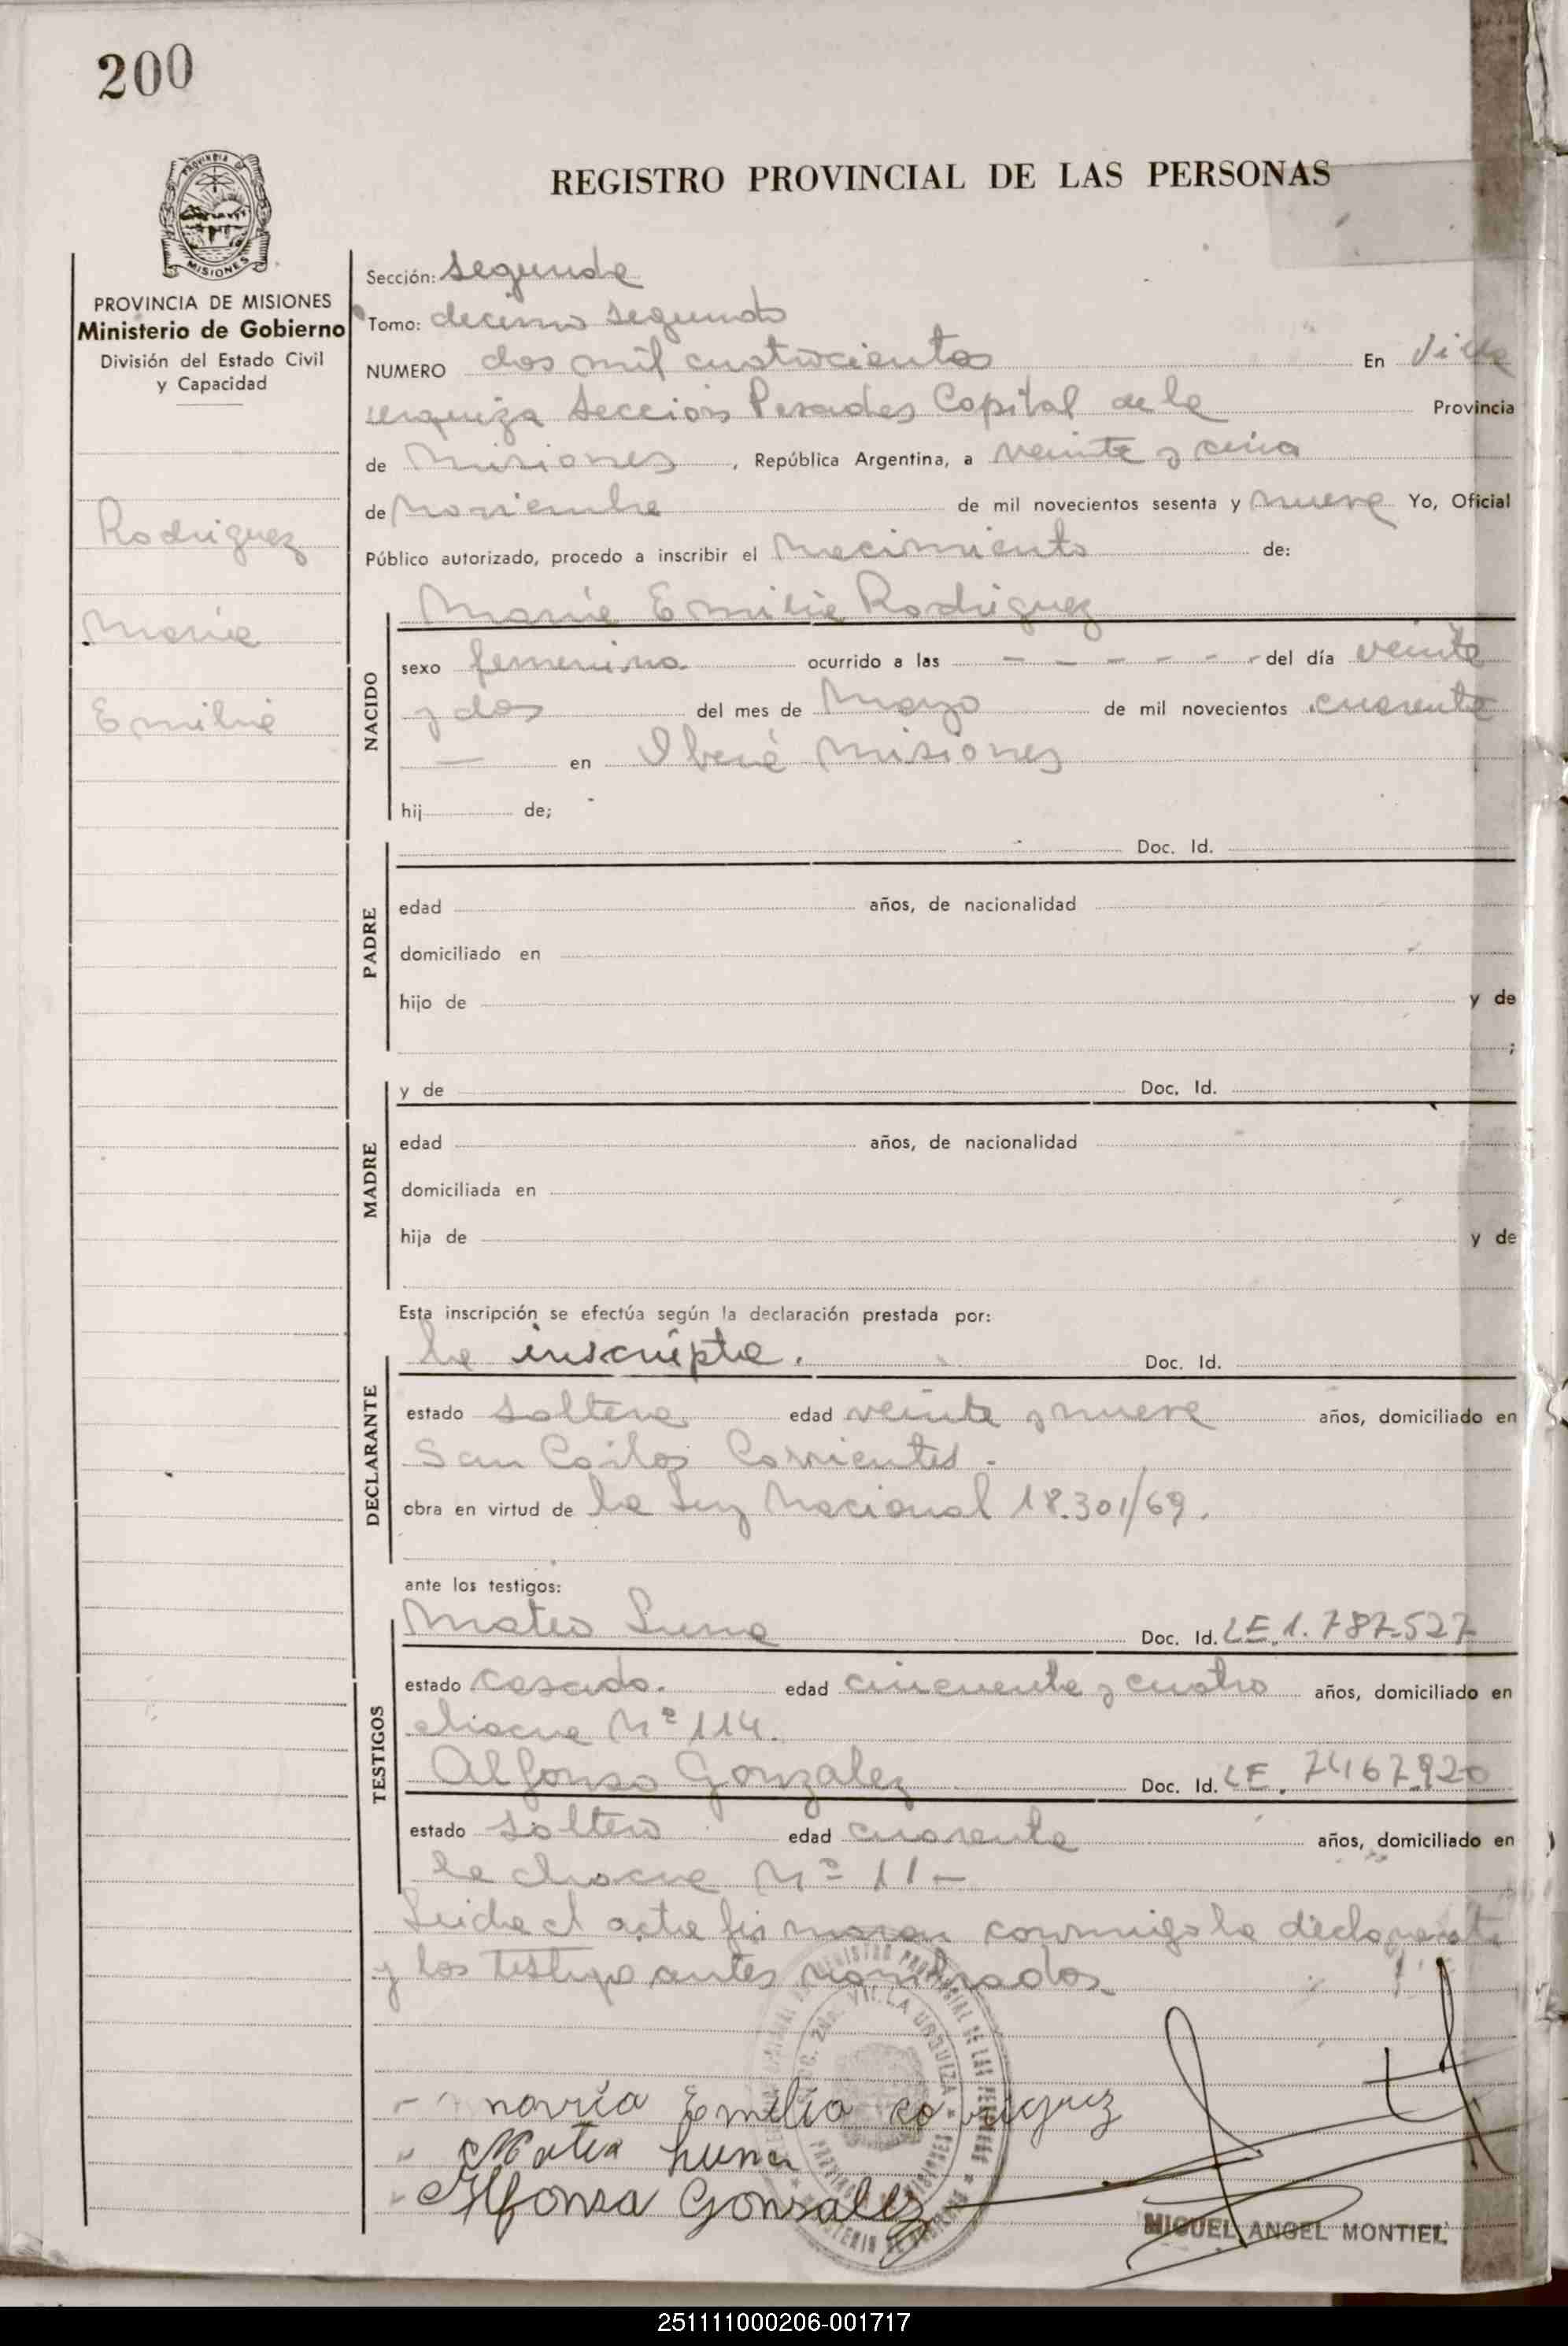 200
REGISTRO PROVINCIAL DE LAS PERSONAS
PROVINCIA DE MISIONES
Ministerio de Gobierno
División del Estado Civil
y Capacidad
Rodriguez
Maria
Emilia
Sección: segunda
Tomo: decimo segundo
NUMERO dos mil cuatrocientos En Villa
urquiza Seccion Posadas Capital de la Provincia
de Misiones, República Argentina, a veinte y cinco
de Noviembre de mil novecientos sesenta y nueve Yo, Oficial
Público autorizado, procedo a inscribir el Nacimiento de:
NACIDO
Maria Emilia Rodriguez
sexo femenino ocurrido a las - - - - - - del día veinte
y dos del mes de Mayo de mil novecientos cuarenta
— en Oberá Misiones
hij de;
PADRE
Doc. Id.
edad años, de nacionalidad
domiciliado en
hijo de y de
;
MADRE
y de Doc. Id.
edad años, de nacionalidad
domiciliada en
hija de y de
Esta inscripción se efectúa según la declaración prestada por:
DECLARANTE
la inscripta. Doc. Id.
estado soltera edad veinte y nueve años, domiciliado en
San Carlos Corrientes.
obra en virtud de la Ley Nacional 18.301/69.
ante los testigos:
TESTIGOS
Mateo Luna Doc. Id. LE. 1.787.527
estado casado. edad cincuenta y cuatro años, domiciliado en
chacra Nº 114.
Alfonso Gonzalez Doc. Id. LE. 7.467.920
estado soltero edad cuarenta años, domiciliado en
la chacra Nº 11-
Leida el acta firmaran conmigo la declarante
y los testigo antes nombrados
REGISTRO PROVINCIAL DE LAS PERSONAS
VILLA URQUIZA
maría Emilia rodriguez
Mateo Luna
Alfonso Gonsalez
MIGUEL ANGEL MONTIEL
251111000206-001717